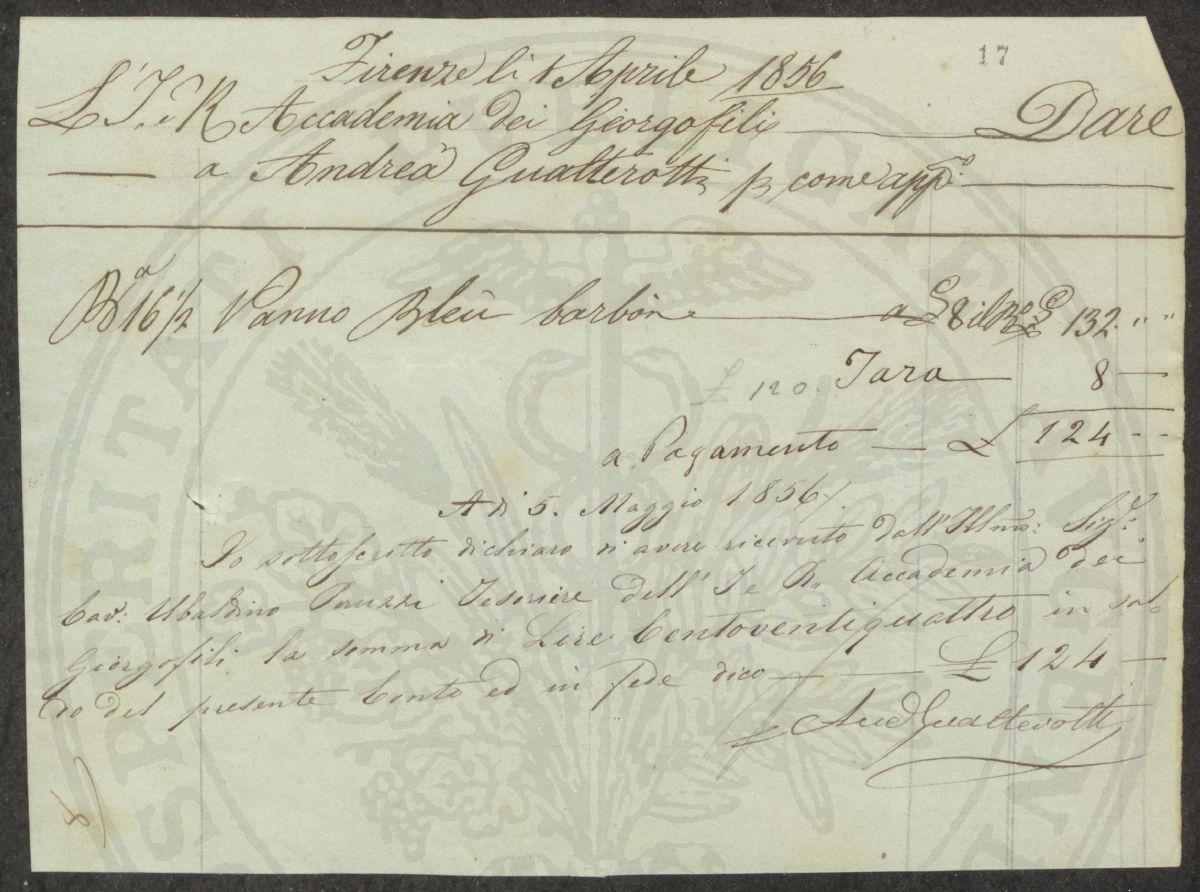 17
Firenze li 1 Aprile 1856
L'I. e R Accademia dei Georgofili Dare
a Andrea Gualterotti p come appo.
Ba 16 1/2 Panno Bleù carbon a £ 8 il Bo £ 132. " "
£ 120. Tara 8 —
a Pagamento — £ 124 - -
A dì 5. Maggio 1856
Io sottoscritto dichiaro di avere ricevuto dall'Illmo: Sigr:
Cav: Ubaldino Peruzzi Tesoriere dell'I e R. Accademia dei
Georgofili la somma di Lire Centoventiquattro in sal-
do del presente Conto ed in fede dico — £ 124 —
And Gualterotti
8
PROSPERITATI PUBLICAE AUGENDAE